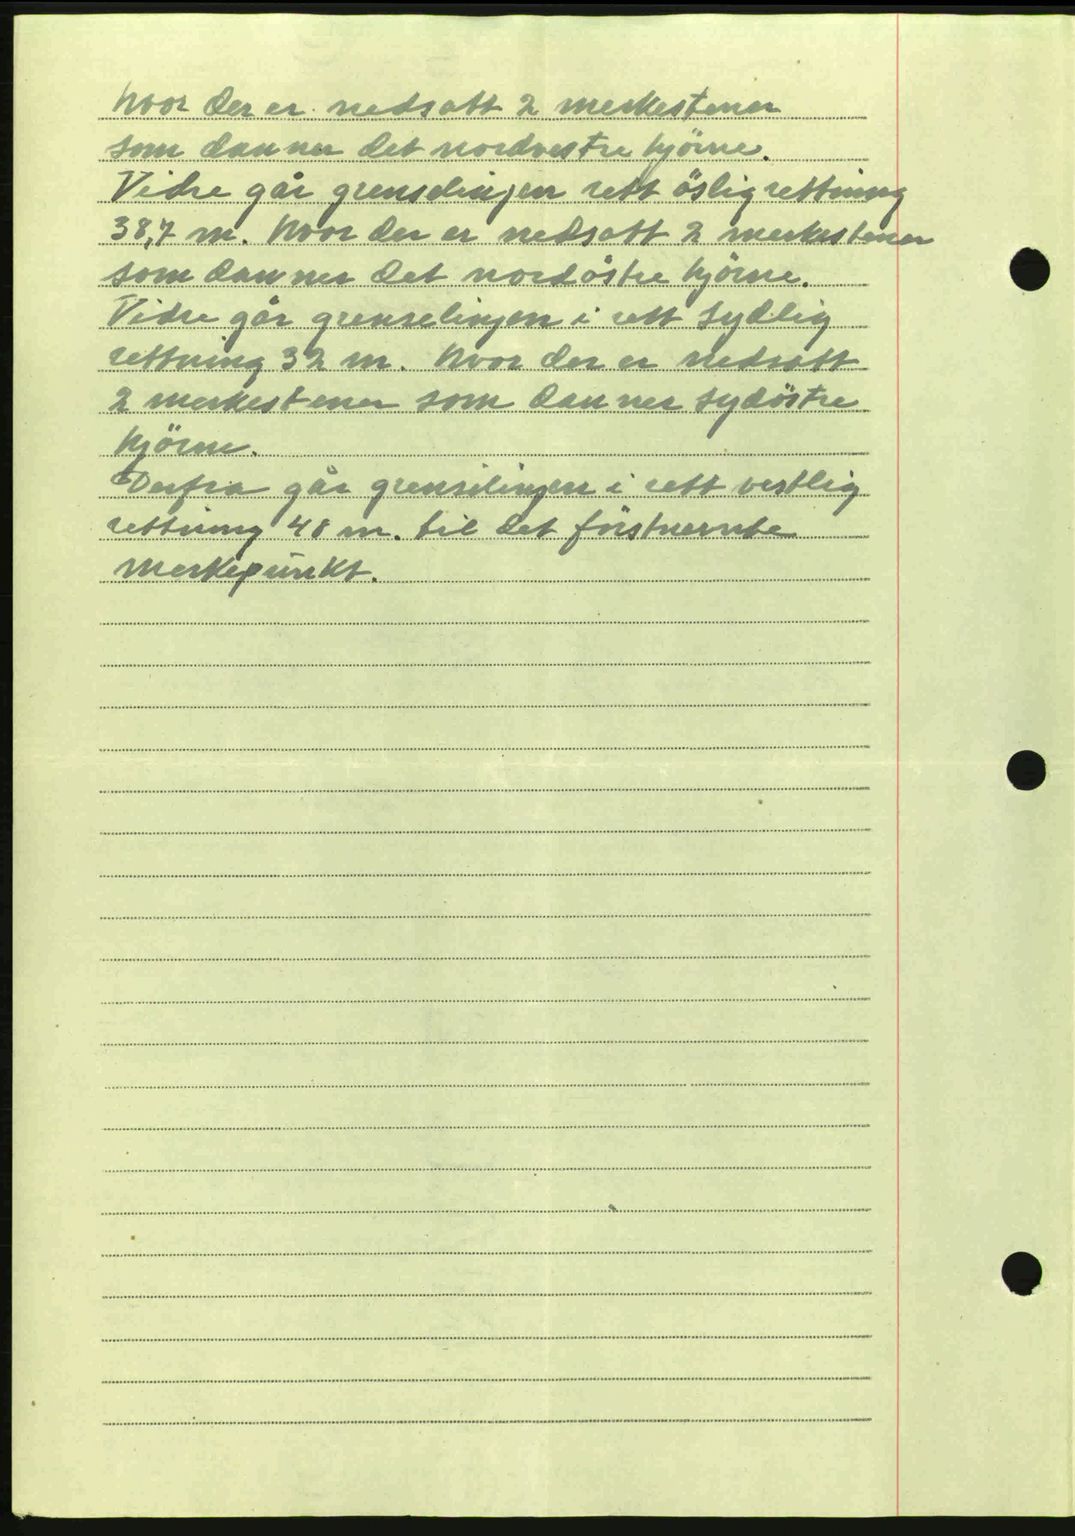 hvor der er nedsatt 2 merkestener
som danner det nordvestre hjörne.
Vidre går grenselinjen rett öslig rettning
38,7 m. hvor der er nedsatt 2 merkestener
som danner det nordöstre hjörne.
Vidre går grenselinjen i rett sydlig
rettning 32 m. hvor der er nedsatt
2 merkestener som danner sydöstre
hjörne.
Derfra går grenselinjen i rett vestlig
rettning 48 m. til det förstnevnte
merkepunkt.